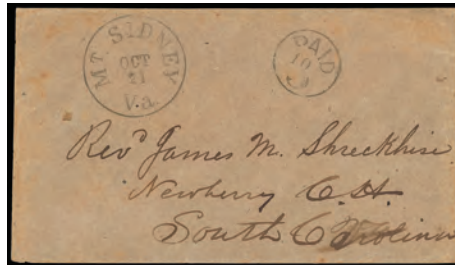 MT. SIDNEY
OCT
21
Va.
PAID
10
Revd James M. Shreckhise
Newberry C.H.
South Carolina